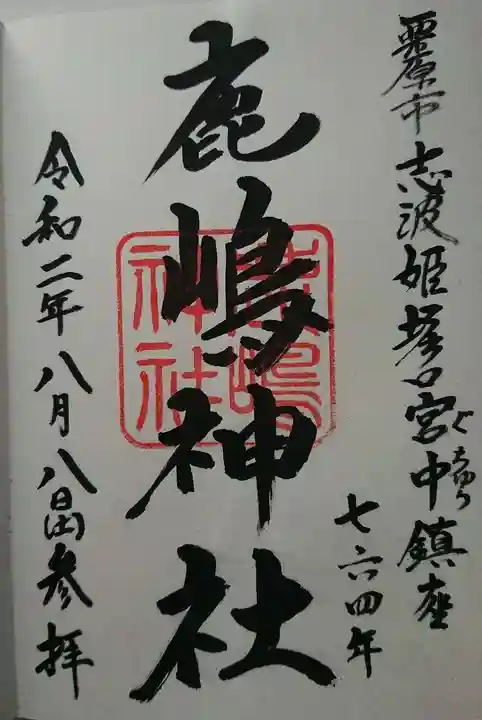 栗原市志波姫堀口宮中鎮座
ぐうちゅう
七六四年
鹿嶋神社
鹿嶋神社
令和二年八月八日(土)参拝